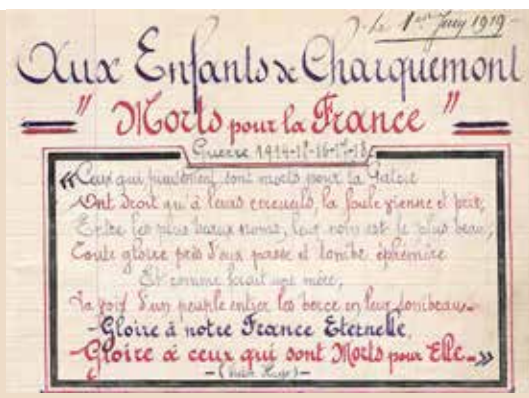 le 1er Juin 1919 -
Aux Enfants de Charquemont
" Morts pour la France "
Guerre 1914-15-16-17-18
« Ceux qui pieusement sont morts pour la Patrie
Ont droit qu'à leurs cercueils, la foule vienne et prie,
Entre les plus beaux noms, leur nom est le plus beau,
Toute gloire près d'eux passe et tombe éphémère
Et comme ferait une mère,
La voix d'un peuple entier les berce en leur tombeau -
- Gloire à notre France Eternelle,
- Gloire à ceux qui sont Morts pour Elle - »
- (Victor Hugo) -